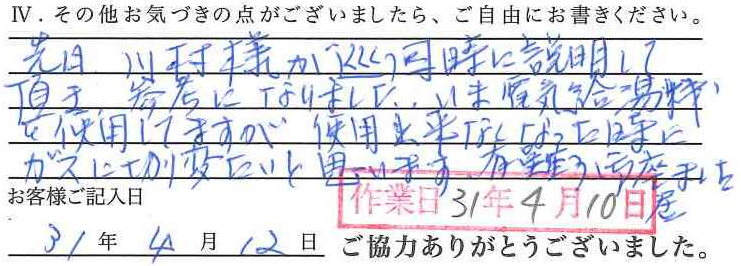 Ⅳ．その他お気づきの点がございましたら、ご自由にお書きください。
先日 川村様が巡回時に説明して
頂き 参考になりました．いま電気給湯
を使用してますが 使用出来なくなった時に
ガスに切り変たいと思います 有難う
お客様ご記入日
作業日 31年4月10日
31年4月12日 ご協力ありがとうございました。